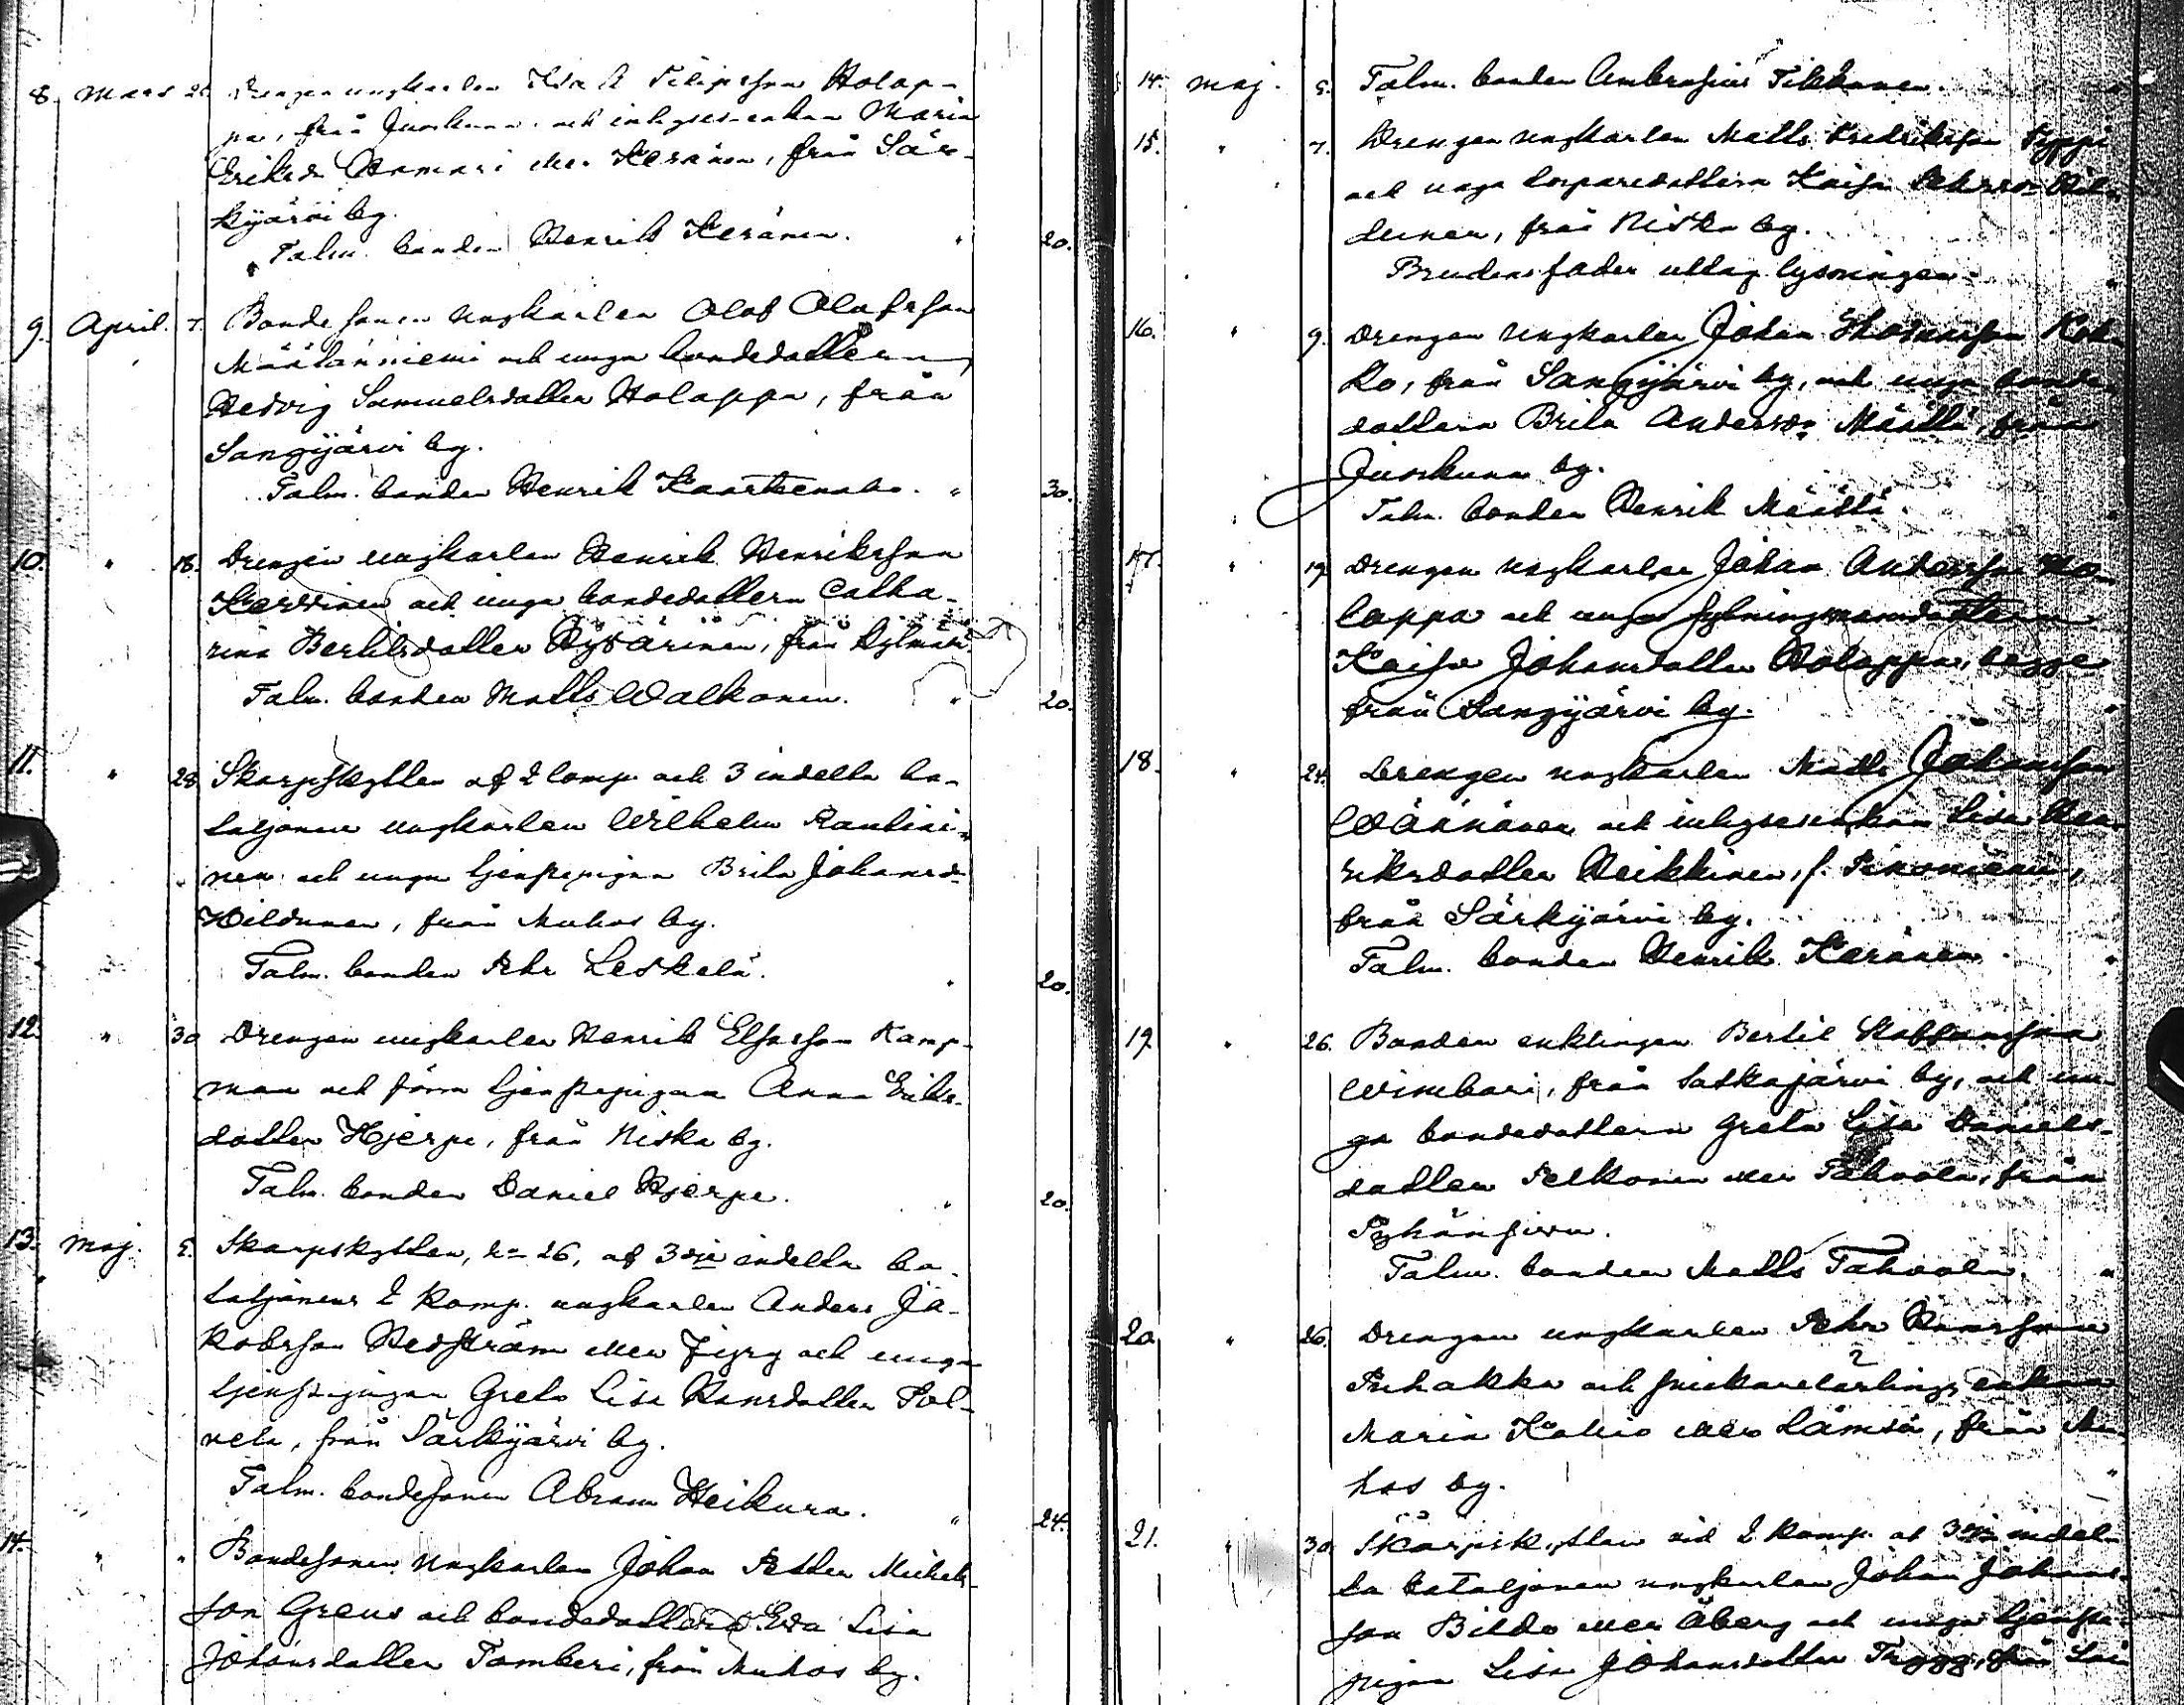 8. Mars 26. Drengen ungkarlen Isak Filipsson Holap-
pa, från Juorkuna och inhyses-enkan Maria
Eriksdr Hamari eller Keränen, från Sär-
kijärvi by.
Talm. bonden Henrik Keränen. " 20.
9. April. 7. Bondesonen ungkarlen Olof Olofsson
Määtänniemi och unga bondedottern
Hedvig Samuelsdotter Holappa, från
Sangijärvi by.
Talm. bonden Henrik Kaartenaho. " 30.
10. " 18. Drengen ungkarlen Henrik Henriksson
Karvinen och unga bondedottern Catha-
rina Bertilsdotter Hyvärinen, från Kylmälä
Talm. bonden Matts Walkonen. " 20.
11. " 28. Skarpskytten af 2 komp. och 3 indelta ba-
taljonen ungkarlen Wilhelm Rautiai-
nen och unga tjenstepigan Brita Johansdr
Hildunen, från Muhos by.
Talm. bonden Pehr Leskelä. " 20.
12. " 30 Drengen ungkarlen Henrik Elfasson Kamp-
man och förra tjenstepigan Anna Eriks-
dotter Hjerpe, från Niska by.
Talm. bonden Daniel Hjerpe. " 20.
13. Maj. 5. Skarpskytten, No 26, af 3dje indelta ba-
taljonens 2 komp. ungkarlen Anders Ja-
kobsson Hedström eller Fyrg och unga
tjenstepigan Greta Lisa Hansdotter Pol-
vela, från Särkijärvi by.
Talm. bondesonen Abram Heikura. " 24.
14. " " Bondesonen ungkarlen Johan Petter Michels-
son Greus och bondedottern Eva Lisa
Johansdotter Tamberi, från Muhos by.
14. Maj. 5. Talm. bonden Ambrosius Tikkanen. "
15. " 7. Drengen ungkarlen Matts Fredriksson Typpi
och unga torparedottern Kaisa Pehrsdr Hil-
dunen, från Niska by.
Brudens fader uttog lysningen.
16. " 9. Drengen ungkarlen Johan Thomasson Kok-
ko, från Sangijärvi by, och unga bonde-
dottern Brita Andersdr Määttä, från
Juorkuna by.
Talm. bonden Henrik Määttä. "
17. " 19. Drengen ungkarlen Johan Andersson Ho-
lappa och unga fjerdingsmansdottern
Kaisa Johansdotter Holappa, begge
från Sangijärvi by. "
18. " 24. Drengen ungkarlen Matts Johansson
Wäänänen och inhysesenkan Lisa Hen-
riksdotter Heikkinen, f. Pikoniemi,
från Särkijärvi by.
Talm. bonden Henrik Keränen. "
19. " 26. Bonden enklingen Bertil Staffansson
Wimbari, från Laitasjärvi by, och un-
ga bondedottern Greta Lisa Daniels-
dotter Pelkonen eller Tahvola, från
Pyhänsivu.
Talm. bonden Matts Tahvola. "
20. " 26. Drengen ungkarlen Pehr Hansson
Puhakka och snickarelärlings enkan
Maria Kokio eller Lämsä, från Mu-
hos by. "
21. " 30. Skarpskytten vid 2 komp. af 3dje indel-
ta bataljonen ungkarlen Johan Johans-
son Bildo eller Åberg och unga tjenste-
pigan Lisa Johansdotter Trygg, från Lai